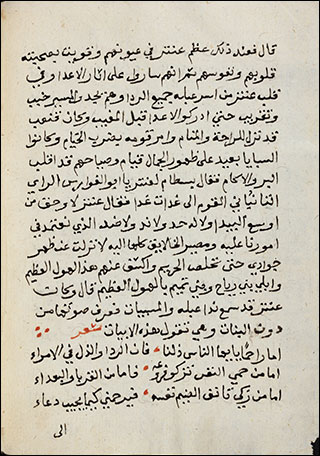 قال فعند ذلك عظم عنتر في عيونهم وقويت بصحبته
قلوبهم ونفوسهم ثم انهم ساروا على اثار الاعدا وفي
قلب عنتر من اسر عبله جميع الردا وهم بجد والمسير خبب
وتقريب حتى ادركوا الاعدا قبل المغيب وكان قعنب
قد نزل للراحة والمنام وامر قومه بضرب الخيام وكانوا
السبايا بعيد على ظهور الجمال قيام وصياحهم قد اقلب
البر والاكام فقال بسطام لعنتر يا ابو الفوارس الراي
اننا في القوم الى غدات غدا فقال عنتر لا وحق من
اوسع البيد ولا له حد ولا ند ولا ضد الذي نعتمد في
امورنا عليه ومصير الخلايق كلها اليه لا نزلت عن ظهر
جوادي حتى نخلص الحريم واكشف عنهم هذا الهول العظيم
وابلي بني رياح وبني تميم بالهول العظيم قال وكانت
عنتر قد سمع ندا عبله والمسبيات فعرف صوتها من
دون البنات وهي تقول هذه الابيات شعر
اما راحما يا ايها الناس ذلنا فان الردا والذل في الامراء
اما من حمي النفس فامن القربا والبعداء
اما من زكي نفسه فيرحمني كيما يجيب دعاء
الى